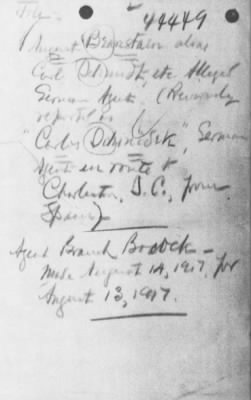 44449
August Bernstein alias
Carl Schmidt, etc. Alleged
German Agent. (Previously
reported as
"Carlos Schmidt," German
Agent en route to
Charleston, S.C., from
Spain)
Agent Branch Bocock -
Made August 14, 1917, for
August 13, 1917.